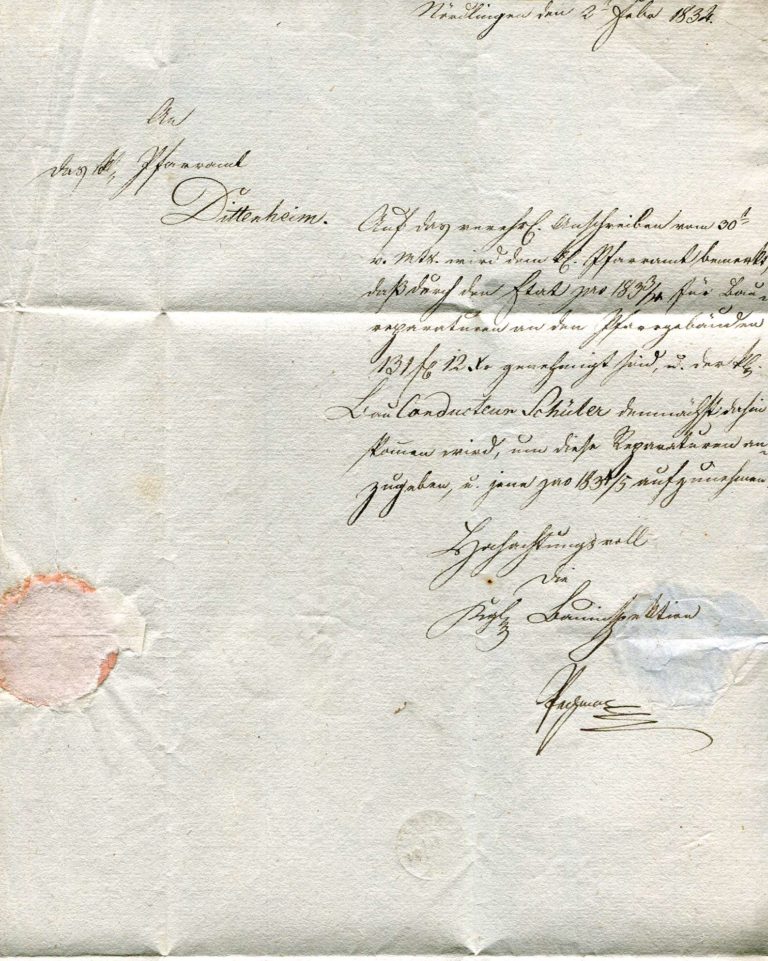 Nördlingen den 2t Febr 1834.
An
das kl. Pfarramt
Dittenheim.
Auf das verehrl. Anschreiben vom 30t
v. Mts. wird dem kl. Pfarramt bemerkt,
daß durch den Etat pro 1833/4 für Bau-
reparaturen an den Pfarrgebäuden
131 f 12 Xr genehmigt sind, u. der kl.
Bau Conducteur Schüler demnächst dahin
kommen wird, um diese Reparaturen an-
zugeben, u. jene pro 1834/5 aufzunehmen.
Hochachtungsvoll
die
Kgl. Bauinspektion